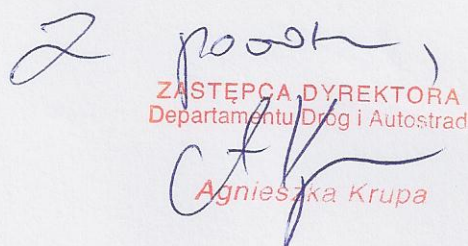 Z powa,
ZASTĘPCA DYREKTORA
Departamentu Dróg i Autostrad
Agnieszka Krupa